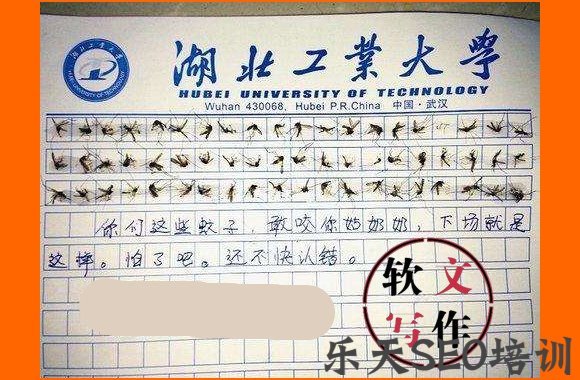 湖北工業大學
HUBEI UNIVERSITY OF TECHNOLOGY
Wuhan 430068, Hubei P.R.China 中国·武汉
你们这些蚊子，敢咬你奶奶奶，下场就是
这样。怕了吧。还不快认错。
软文
写作
乐天SEO培训